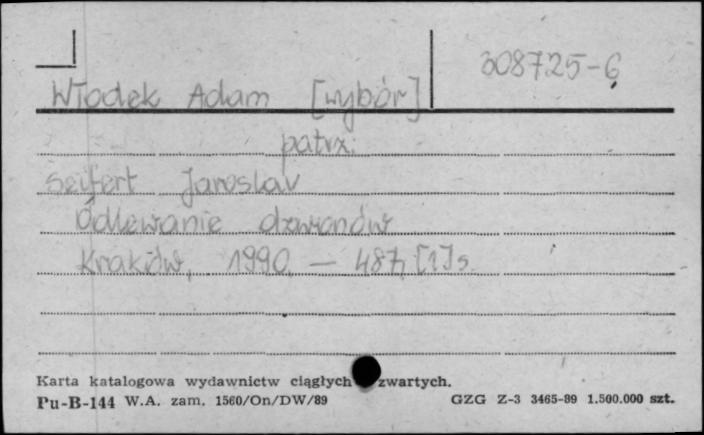 308725-6
Włodek Adam [wybór]
patrz:
Seifert Jaroslav
Odlewanie dzwonów
Kraków, 1990. — 487, [1] s.
Karta katalogowa wydawnictw ciągłych zwartych.
Pu-B-144 W.A. zam. 1560/On/DW/89 GZG Z-3 3465-89 1.500.000 szt.